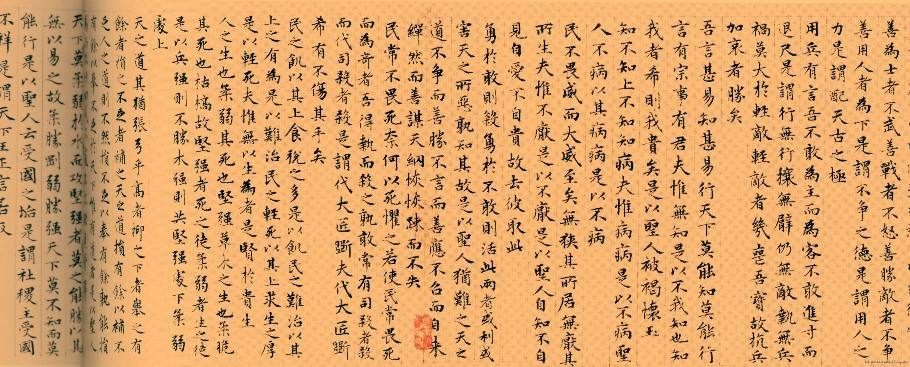 善為士者不武善戰者不怒善勝敵者不爭
善用人者為下是謂不爭之德是謂用人之
力是謂配天古之極
用兵有言吾不敢為主而為客不敢進寸而
退尺是謂行無行攘無臂仍無敵執無兵
禍莫大於輕敵輕敵者幾喪吾寶故抗兵
加哀者勝矣
吾言甚易知甚易行天下莫能知莫能行
言有宗事有君夫惟無知是以不我知也知
我者希則我貴矣是以聖人被褐懷玉
知不知上不知知病夫惟病病是以不病聖
人不病以其病病是以不病
民不畏威而大威至矣無狹其所居無厭其
所生夫惟不厭是以不厭是以聖人自知不自
見自愛不自貴故去彼取此
勇於敢則殺勇於不敢則活此兩者或利或
害天之所惡孰知其故是以聖人猶難之天之
道不爭而善勝不言而善應不召而自來
繟然而善謀天網恢恢踈而不失
民常不畏死奈何以死懼之若使民常畏死
而為奇者吾得執而殺之孰敢常有司殺者殺
而代司殺者殺是謂代大匠斲夫代大匠斲
希有不傷其手矣
民之飢以其上食稅之多是以飢民之難治以其
上之有為是以難治民之輕死以其上求生之厚
是以輕死夫惟無以生為者是賢於貴生
人之生也柔弱其死也堅强草木之生也柔脆
其死也枯槁故堅强者死之徒柔弱者生之徒
是以兵强則不勝木强則共堅强處下柔弱
處上
天之道其猶張弓乎高者抑之下者舉之有
餘者損之不足者補之天之道損有餘以補不
足人之道則不然損不足以奉有餘孰能損
有餘以奉不足
天下柔弱於水而攻堅强者莫之能勝以其
無以易之故柔勝剛弱勝强天下莫不知而莫
能行是以聖人云受國之垢是謂社稷主受國
不祥是謂天下王正言若反